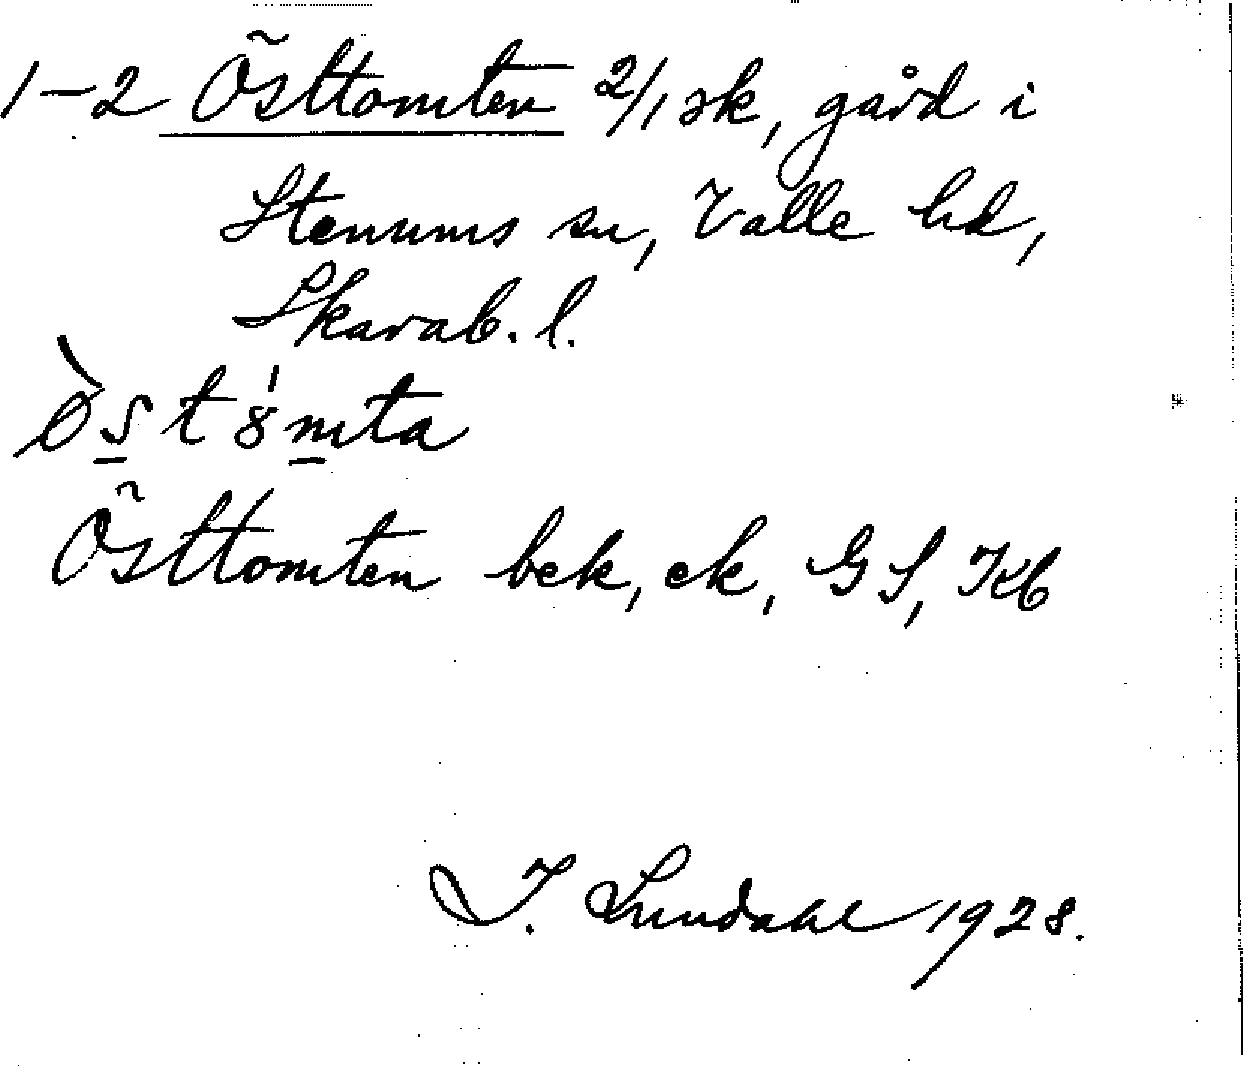 1-2 Östtomten 2/1 sk, gård i
Stenums sn, Valle hd,
Skarab. l.
ø̀st8́mta
Östtomten bek, ek, GS, Kb
I. Lundahl 1928.